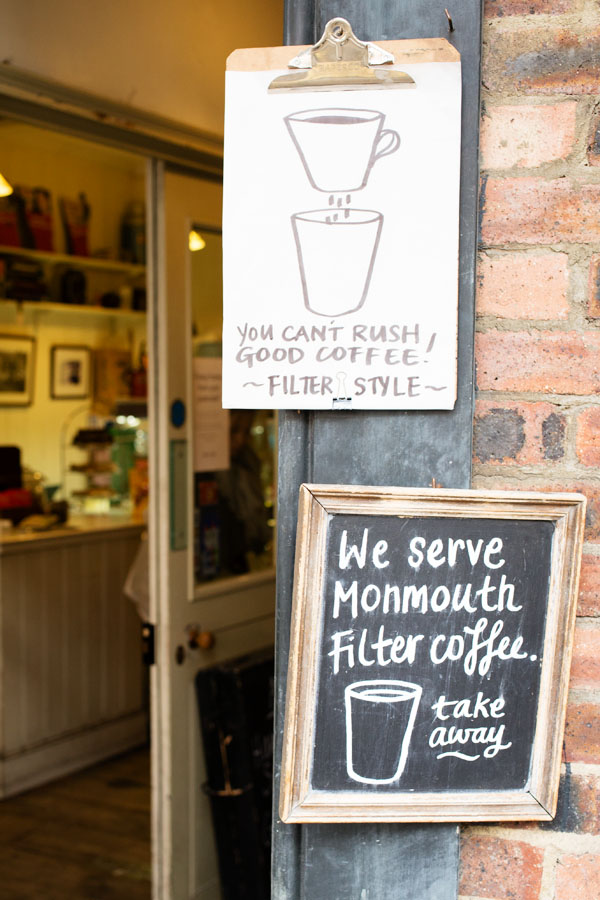 YOU CAN'T RUSH
GOOD COFFEE!
~FILTER STYLE~
We serve
Monmouth
Filter coffee.
take
away